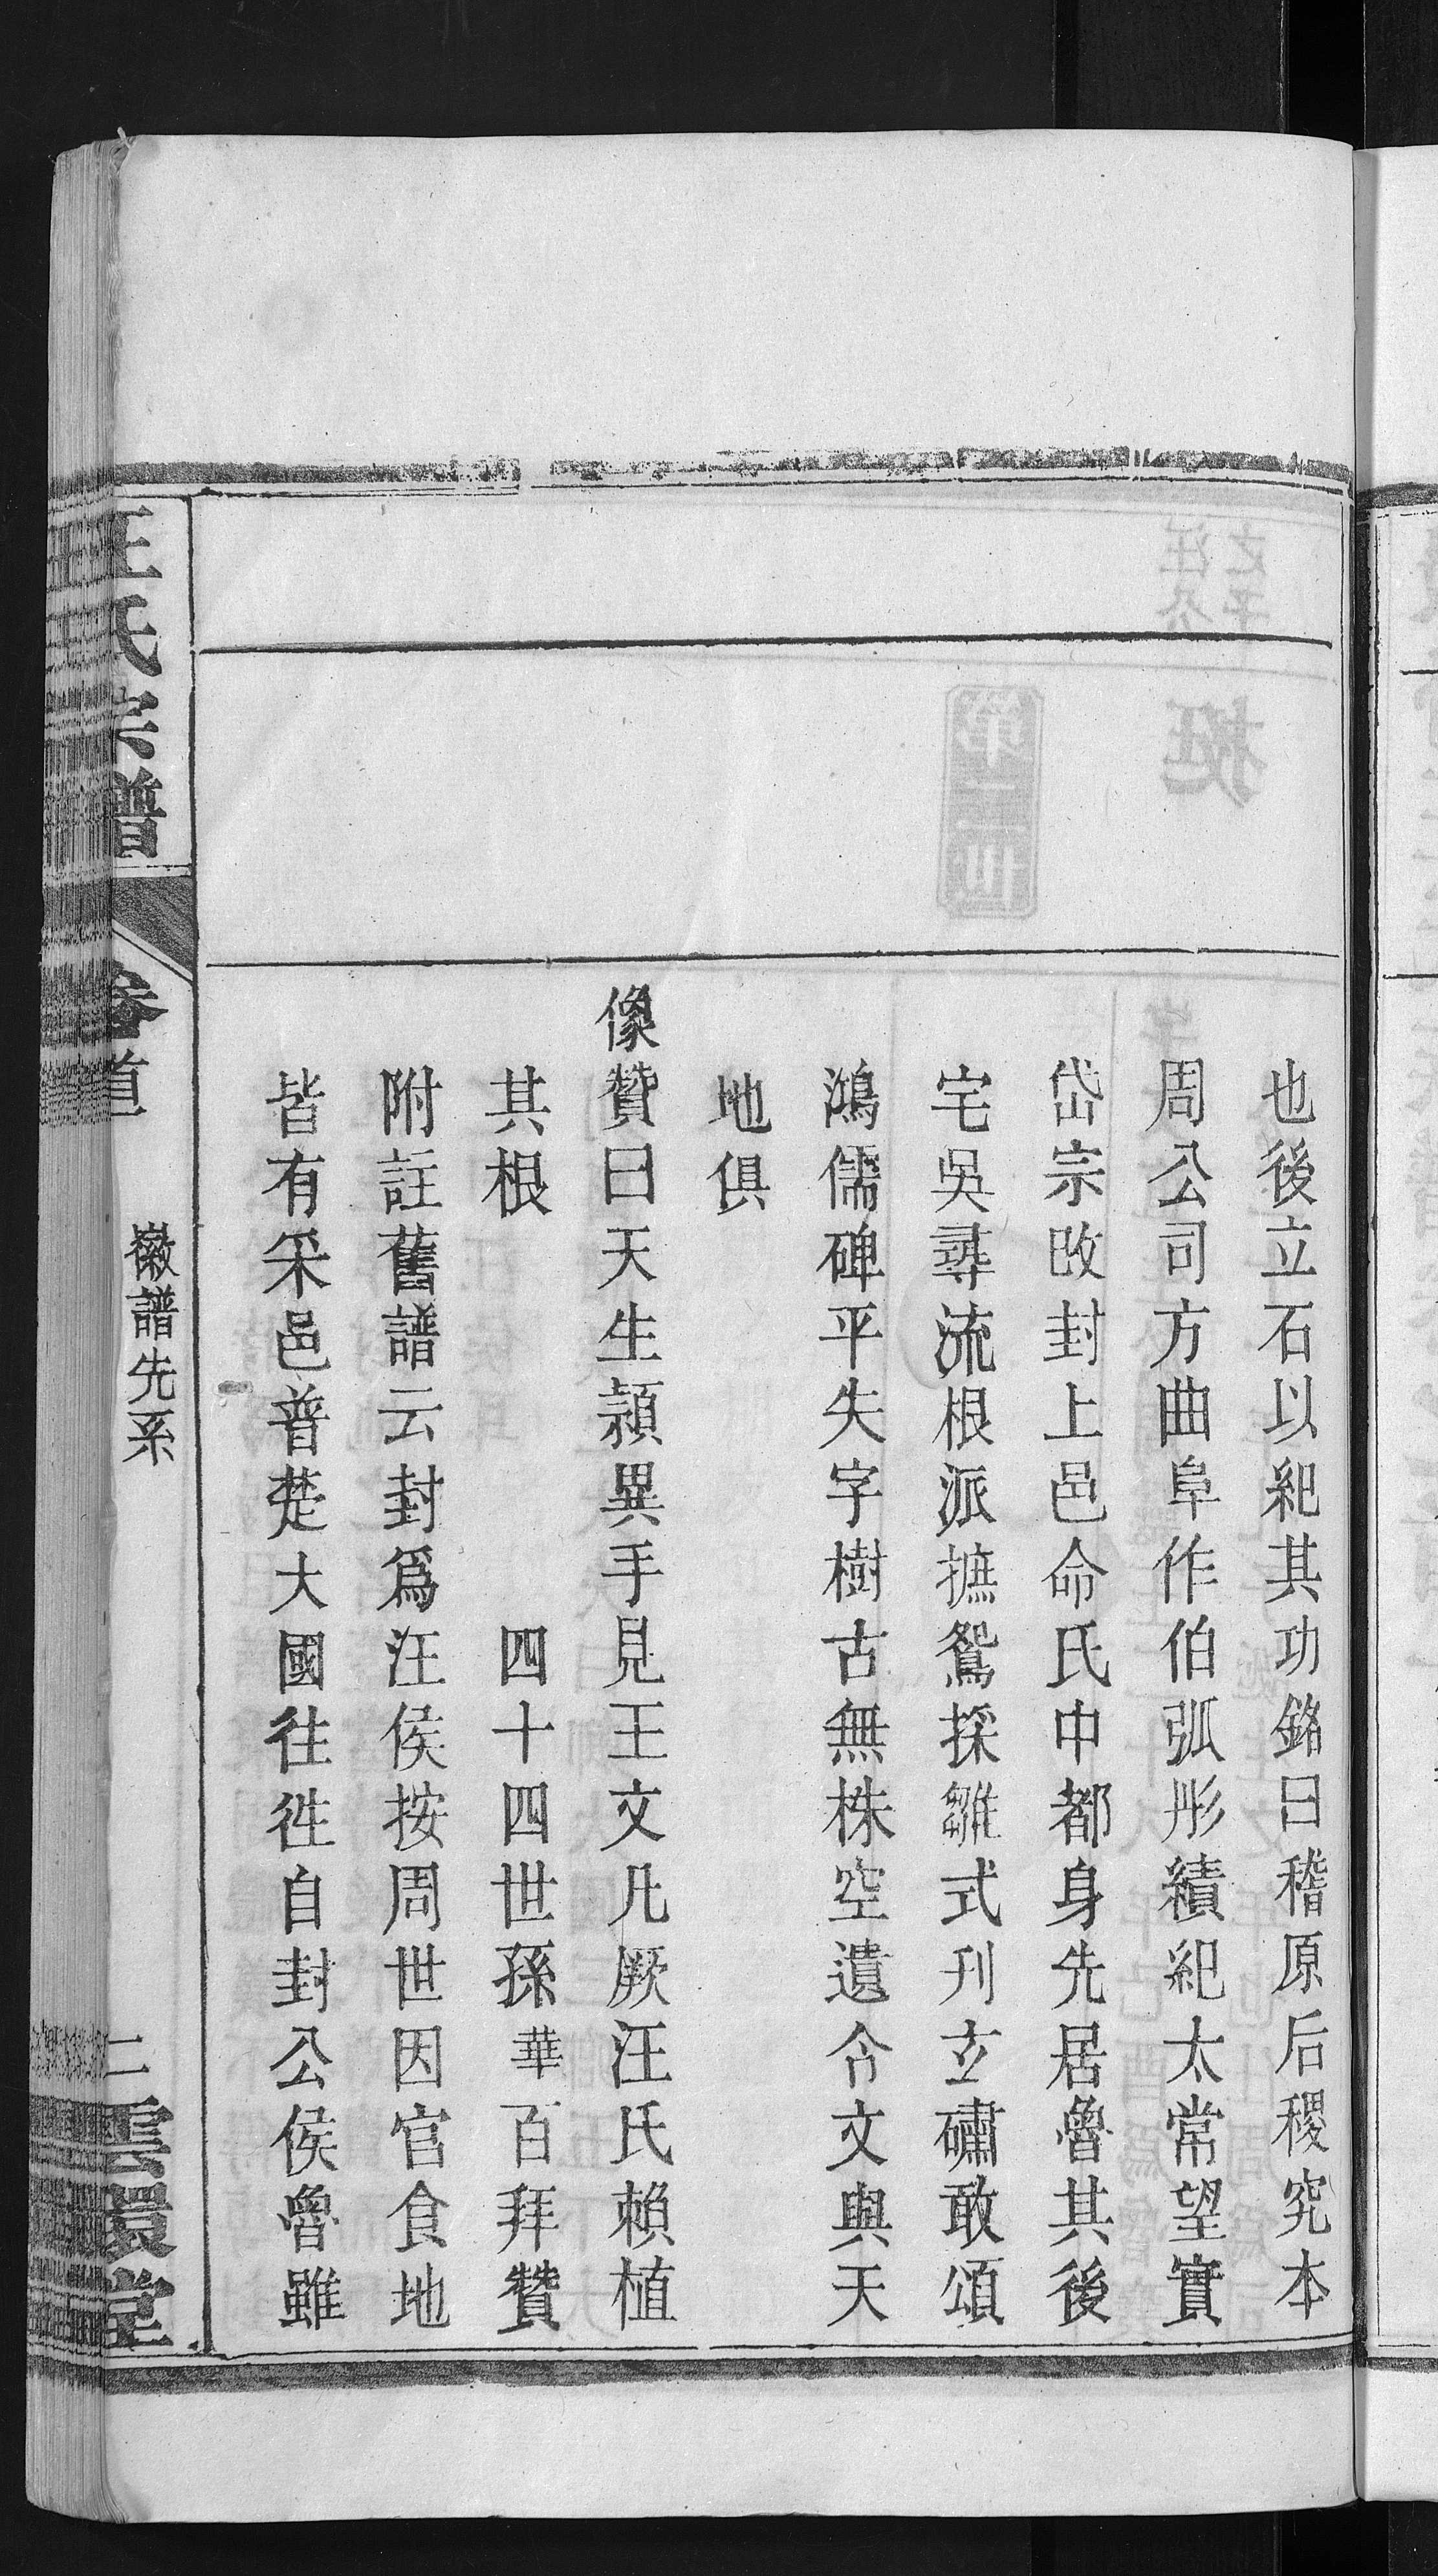 也後立石以紀其功銘曰稽原后稷究本
周公司方曲阜作伯弧彤績紀太常望實
岱宗改封上邑命氏中都身先居魯其後
宅吳尋流根派摭鴛採雛式刋玄礀敢頌
鴻儒碑平失字樹古無株空遺令文與天
地俱
像贊曰天生頴異手見王文凡厥汪氏賴植
其根　四十四世孫華百拜贊
附註舊譜云封爲汪侯按周世因官食地
皆有采邑普楚大國往徃自封公侯魯雖
汪氏宗譜
卷首
徽譜先系
二
雲環堂